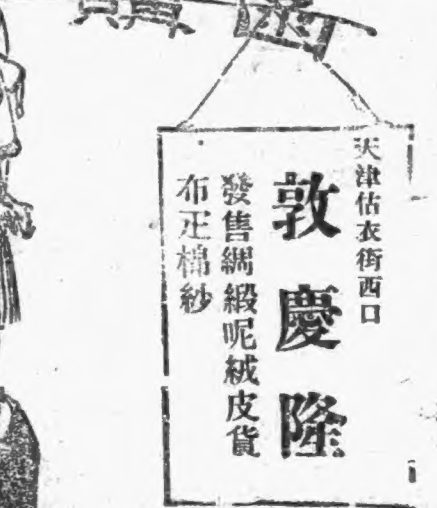 天津估衣街西口
敦慶隆
發售綢緞呢絨皮貨
布疋棉紗